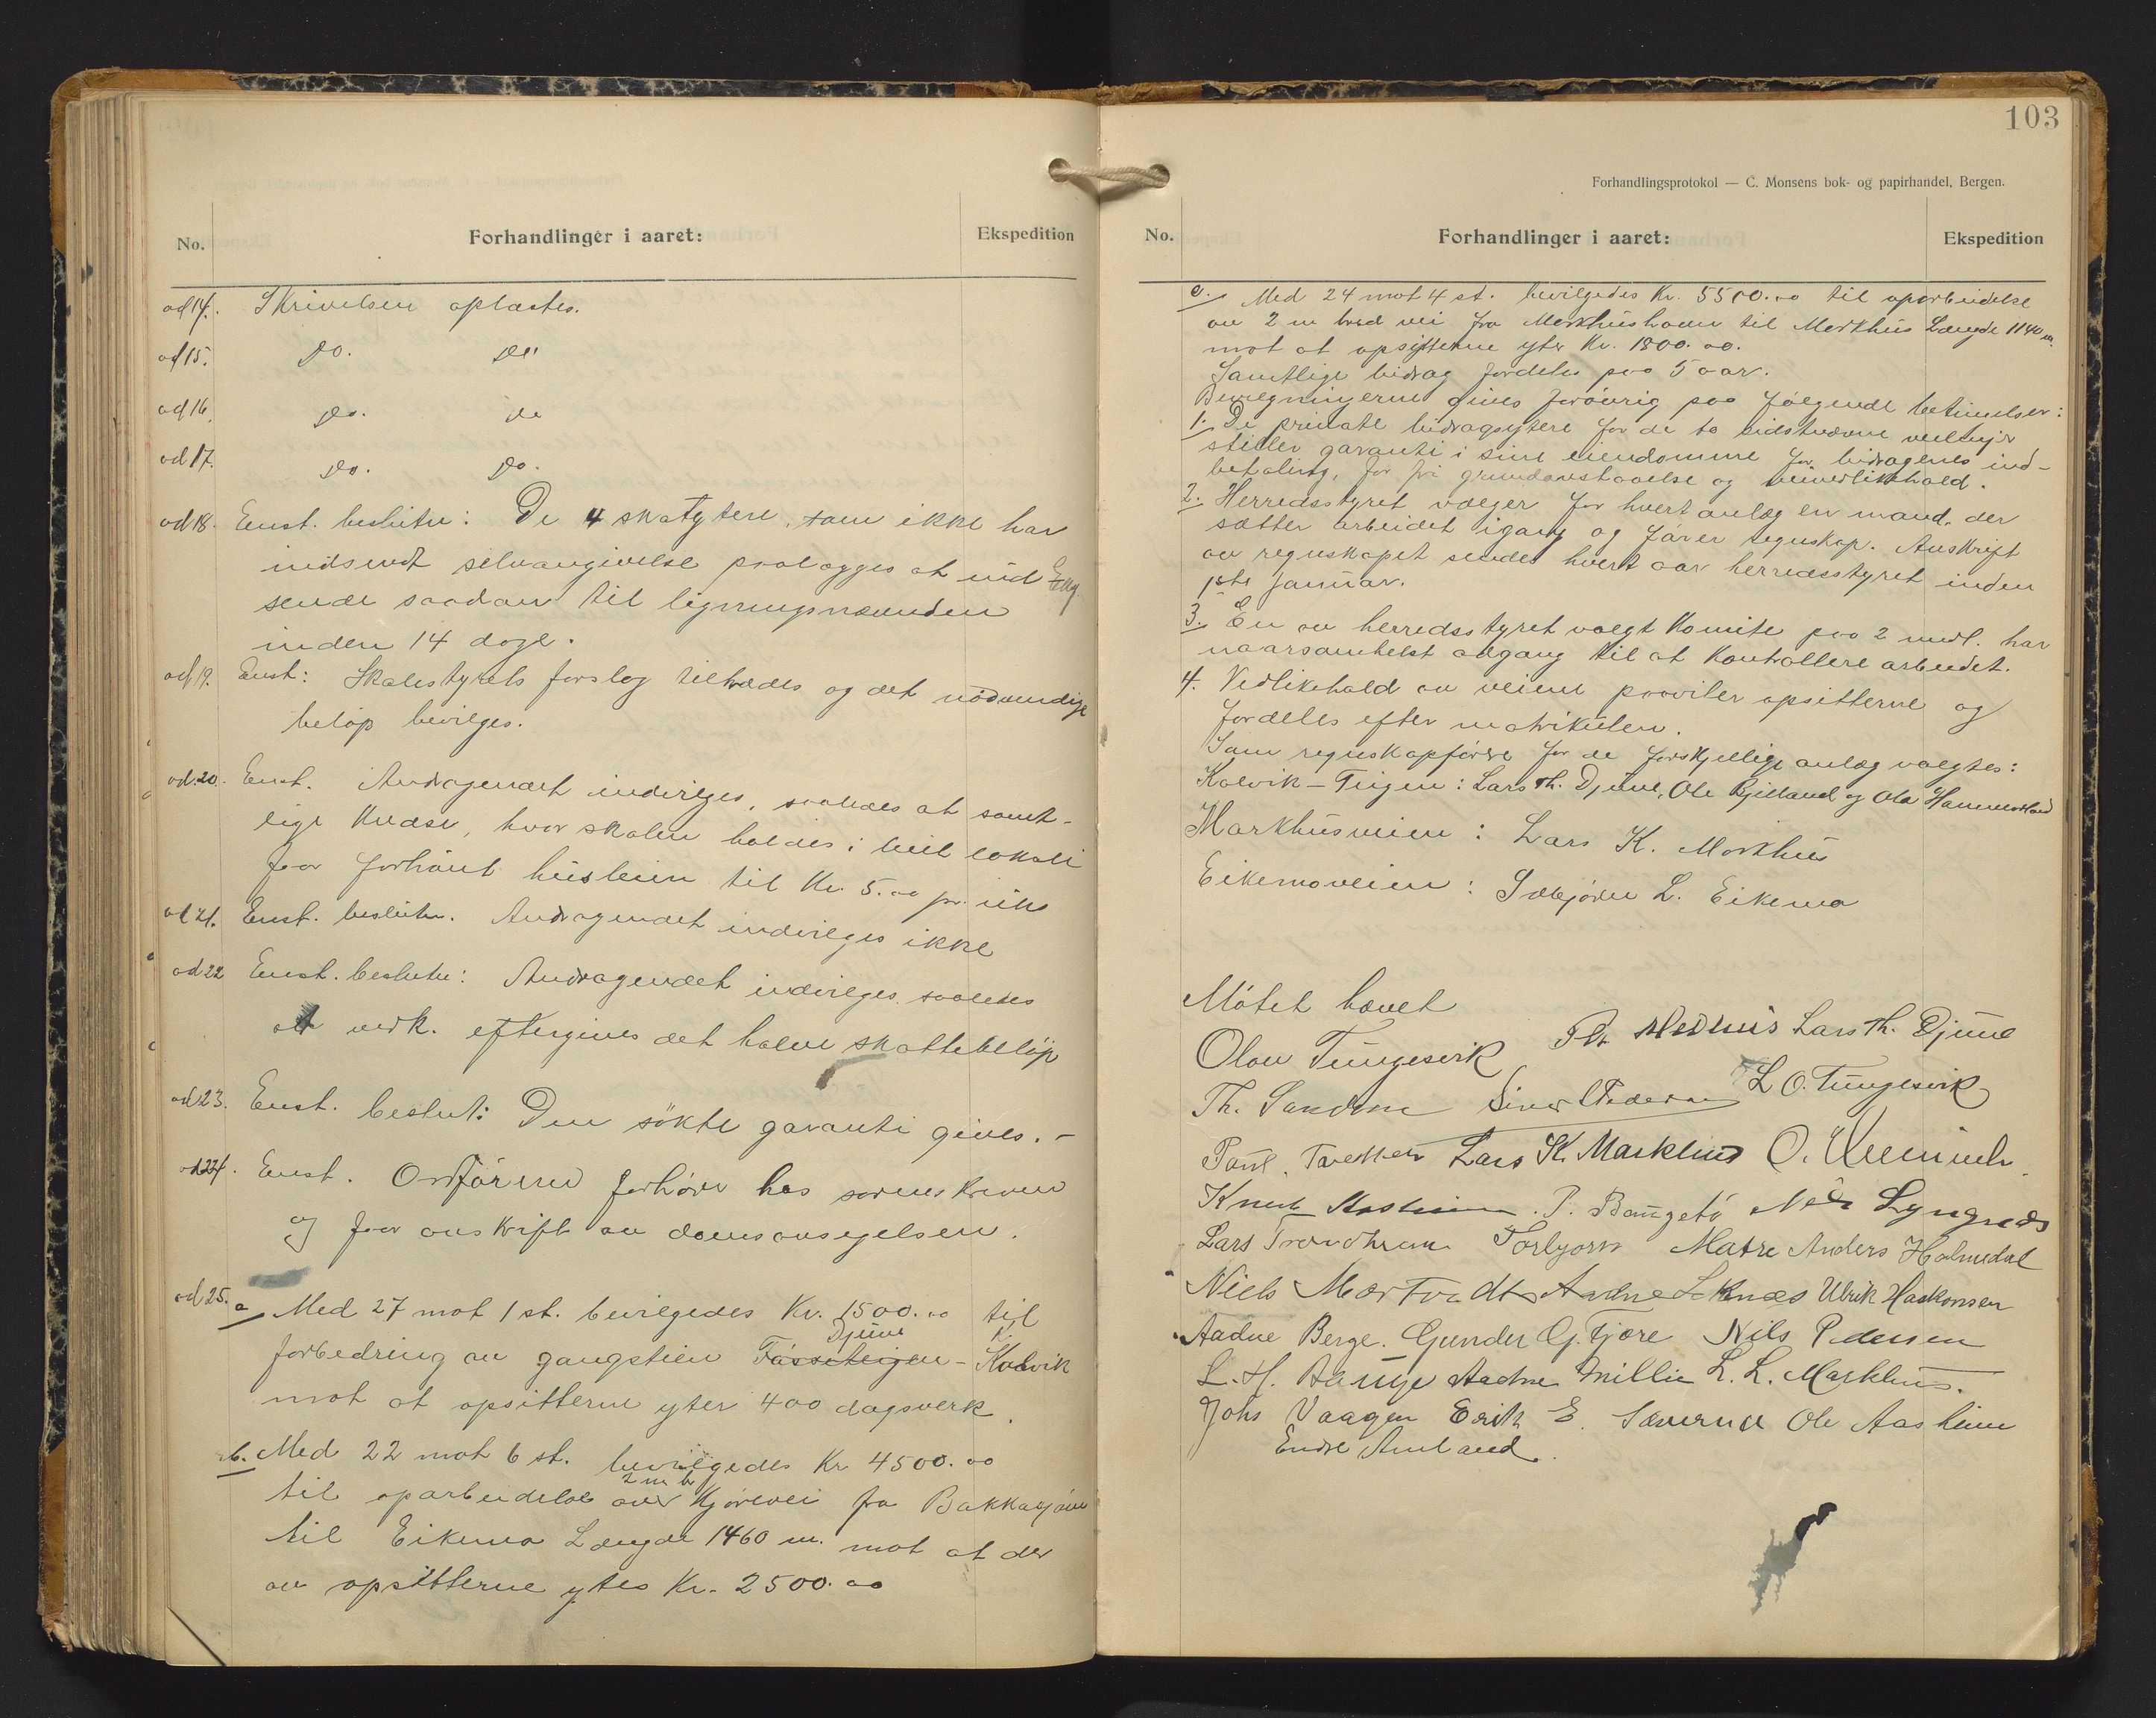 No.
Forhandlinger i aaret:
Ekspedition
ad 14. Skrivelsen oplæstes.
ad 15. Do. Do
ad 16. Do. Do
ad 17. Do. Do.
ad 18. Enst. beslutn: De 4 skatytere, som ikke har
indsendt selvangivelse paalægges at ind Eksg.
sende saadan til ligningsnævnden
inden 14 dage.
ad 19. Enst: Skolestyrets forslag tiltrædes og det nödvendige
belöp bevilges.
ad. 20. Enst. Andragendet indvilges, saaledes at samt-
lige kredse, hvor skolen holdes i leiet lokale
faar forhöiet husleien til Kr. 5.00 pr. uke
ad 21. Enst. beslutn. Andragendet indvilges ikke
ad 22 Enst. beslutn: Andragendet indvilges saaledes
at vedk. eftergives det halve skattebelöp
ad 23. Enst. beslut: Den sökte garanti gives. -
ad 24. Enst. Ordföreren forhörer hos sorenskriveren
og faar avskrift av domsavsigelsen.
ad 25. a Med 27 mot 1 st. bevilgedes Kr. 1500.00 til
Djuve
forbedring av gangstien Fossteigen - Kalvik
mot at opsitterne yter 400 dagsverk.
b. Med 22 mot 6 st. bevilgedes Kr 4500.00
2 m b
til oparbeidelse av Kjörevei fra Bakkasjöen
til Eikemo Længde 1460 m. mot at der
av opsitterne ytes Kr. 2500.00
103
Forhandlingsprotokol — C. Monsens bok- og papirhandel, Bergen.
No.
Forhandlinger i aaret:
Ekspedition
c. Med 24 mot 4 st. bevilgedes Kr. 5500.00 til oparbeidelse
av 2 m bred vei fra Markhushavn til Markhus Længde 1140 m.
mot at opsitterne yter Kr. 1800.00.
Samtlige bidrag fordeles paa 5 aar.
Bevilgningerne gives forövrig paa fölgende betingelser:
1. De private bidragsytere for de to sidstnævnte veilinjer
stiller garanti i sine eiendomme for bidragenes ind-
betaling, for fri grundavstaaelse og veivedlikehold.
2. Herredsstyret vælger for hvert anlæg en mand, der
sætter arbeidet igang og förer regnskap. Avskrift
av regnskapet sendes hvert aar herredsstyret inden
1ste Januar.
3. En av herredsstyret valgt Komite paa 2 medl. har
naarsomhelst adgang til at Kontrollere arbeidet.
4. Vedlikehold av veiene paaviler opsitterne og
fordeles efter matrikulen.
Som regnskapsförere for de forskjellige anlæg valgtes:
Kalvik - Teigen: Lars Th. Djuve, Ole Gjilland og Ola Hammerland
Markhusveien: Lars K. Markhus
Eikemoveien: Torbjörn L. Eikemo
Mötet hævet
Olav Tungesvik P. Medhus Lars Th. Djuve
Th. Sandvn Siver Pedersen L O. Tungesvik
Paul Lars K. Markhus O.
Knut Aasheim. P. Baugstö Nils Lyngnæs
Lars Trondheim Torbjorn Matre Anders Holmedal
Niels Mærtvedt Andne Eknes Ulrik Haakonsen
Aadne Berge. Gunder G. Fjære Nils Pedersen
L. H. Bauge Aadne Millie L. L. Markhus.
Johs Vaagen Erik E. Severud Ole Aasheim
Endre Amland.